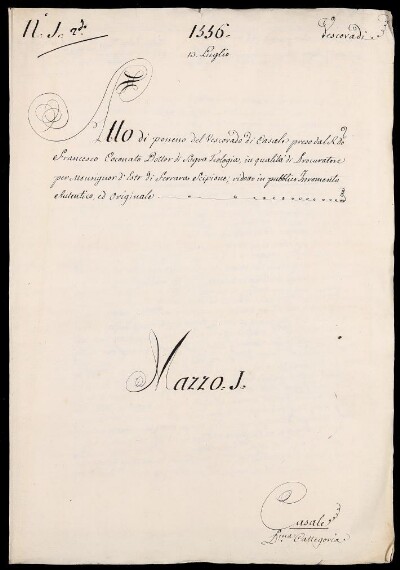 N. 1. 2.do
1556.
Vescovadi
13. Luglio
Atto di possesso del Vescovado di Casale preso dal R.do
Francesco Coconato Dottor di Sagra Teologia, in qualità di Procuratore
per Monsignor d'Este di Ferrara Scipione, ridotto in pubblico Instromento
Autentico, ed Originale
Mazzo. 1.
Casale
P.ma Cattegoria